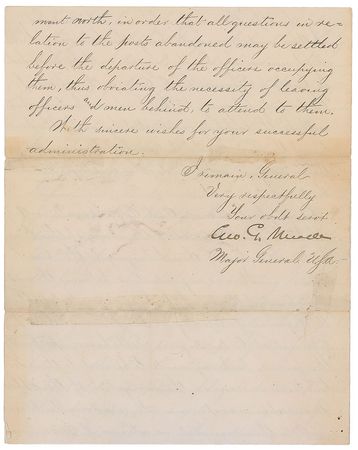 ment north, in order that all questions in re-
lation to the posts abandoned may be settled
before the departure of the officers occupying
them, thus obviating the necessity of leaving
officers and men behind, to attend to them.
With sincere wishes for your successful
administration.
I remain, General
Very respectfully
Your obdt servt
Geo. G. Meade
Major General USA